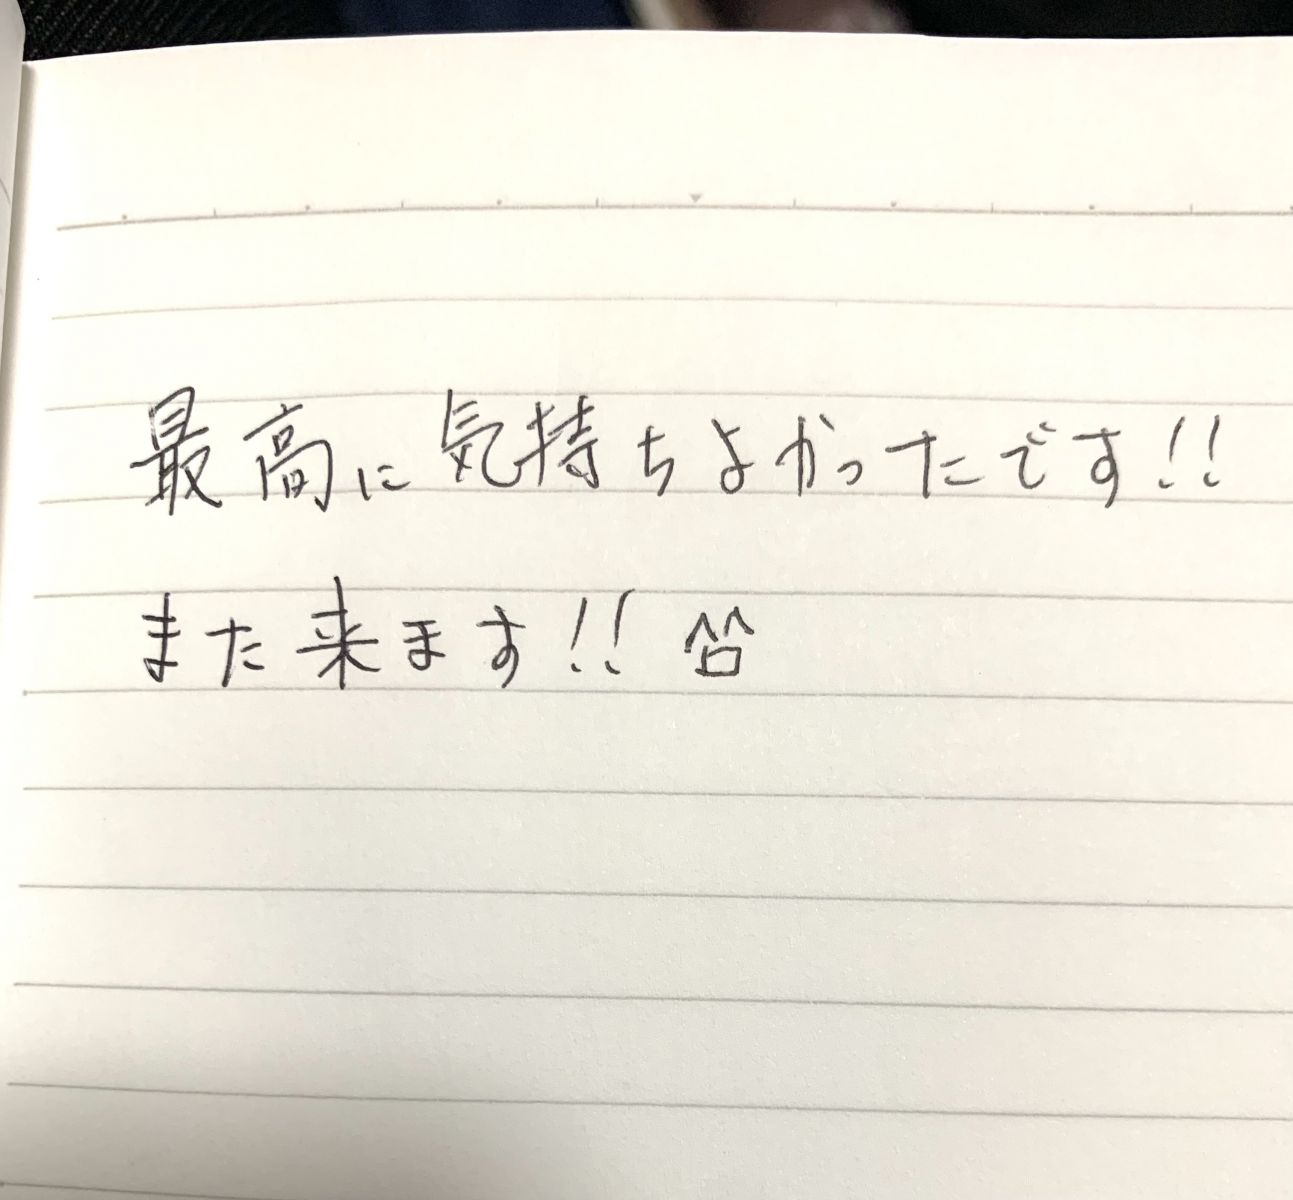 最高に気持ちよかったです!!
また来ます!!